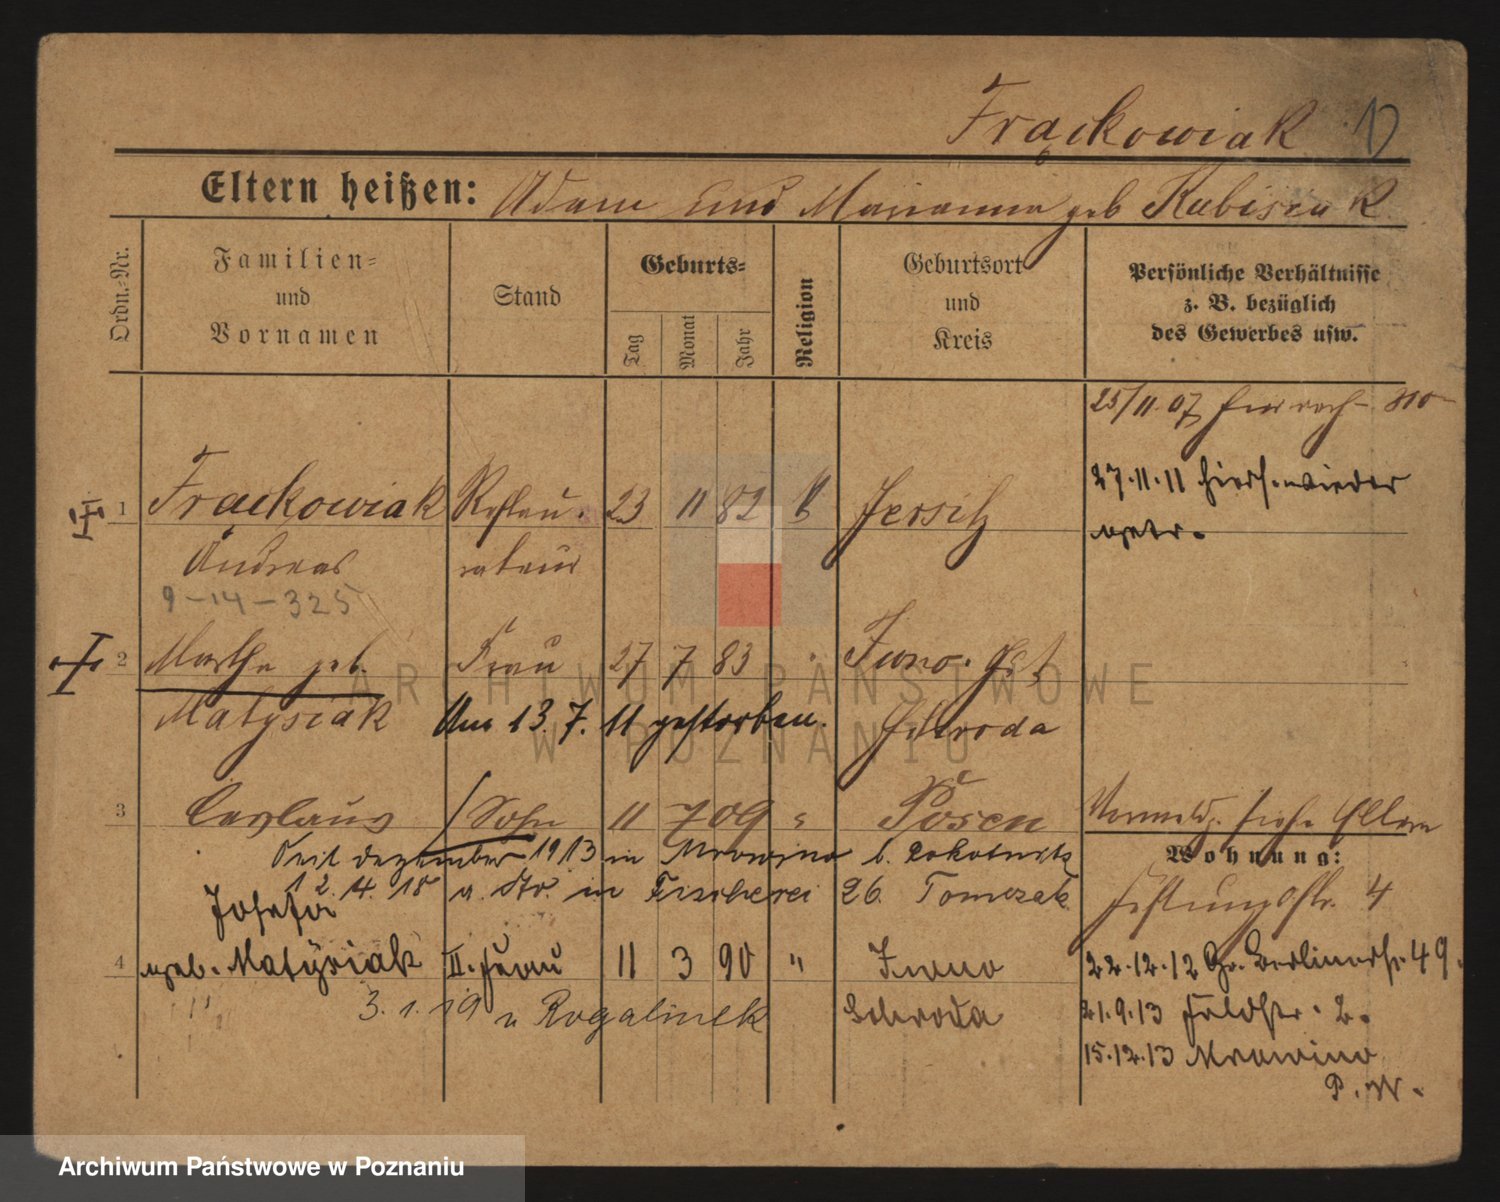 Frąckowiak
Eltern heißen: Adam und Marianna geb Kubisiak
Ordn.-Nr.
Familien-
und
Vornamen
Stand
Geburts-
Tag
Monat
Jahr
Religion
Geburtsort
und
Kreis
Persönliche Verhältnisse
z. B. bezüglich
des Gewerbes usw.
25/11.07
27.11.11 hiers. wieder
1 Frackowiak Restau- 23 11 82 k Jersitz
getr.
Andreas rateur
9-14-325
2 Martha geb. Frau 27 7 83 " Iwno. Gut
Matysiak Am 13.7.11 gestorben. Schroda
3 Ceslaus Sohn 11 7 09 " Posen
Vormldg. siehe Eltern
Seit Dezember 1913 in Mrowino b. Rokotnitz
Wohnung:
12.4.18 a. Str. in Fischerei 26. Tomczak
Festungsstr. 4
Josefa
4 geb. Matysiak II. Frau 11 3 90 " Iwno
22.12.12 Gr. Berlinerstr. 49.
3.1.19 n Rogalinek Schroda
21.9.13 Feldstr. 2.
15.12.13 Mrowino
P. W.
ARCHIWUM PAŃSTWOWE
W POZNANIU
Archiwum Państwowe w Poznaniu